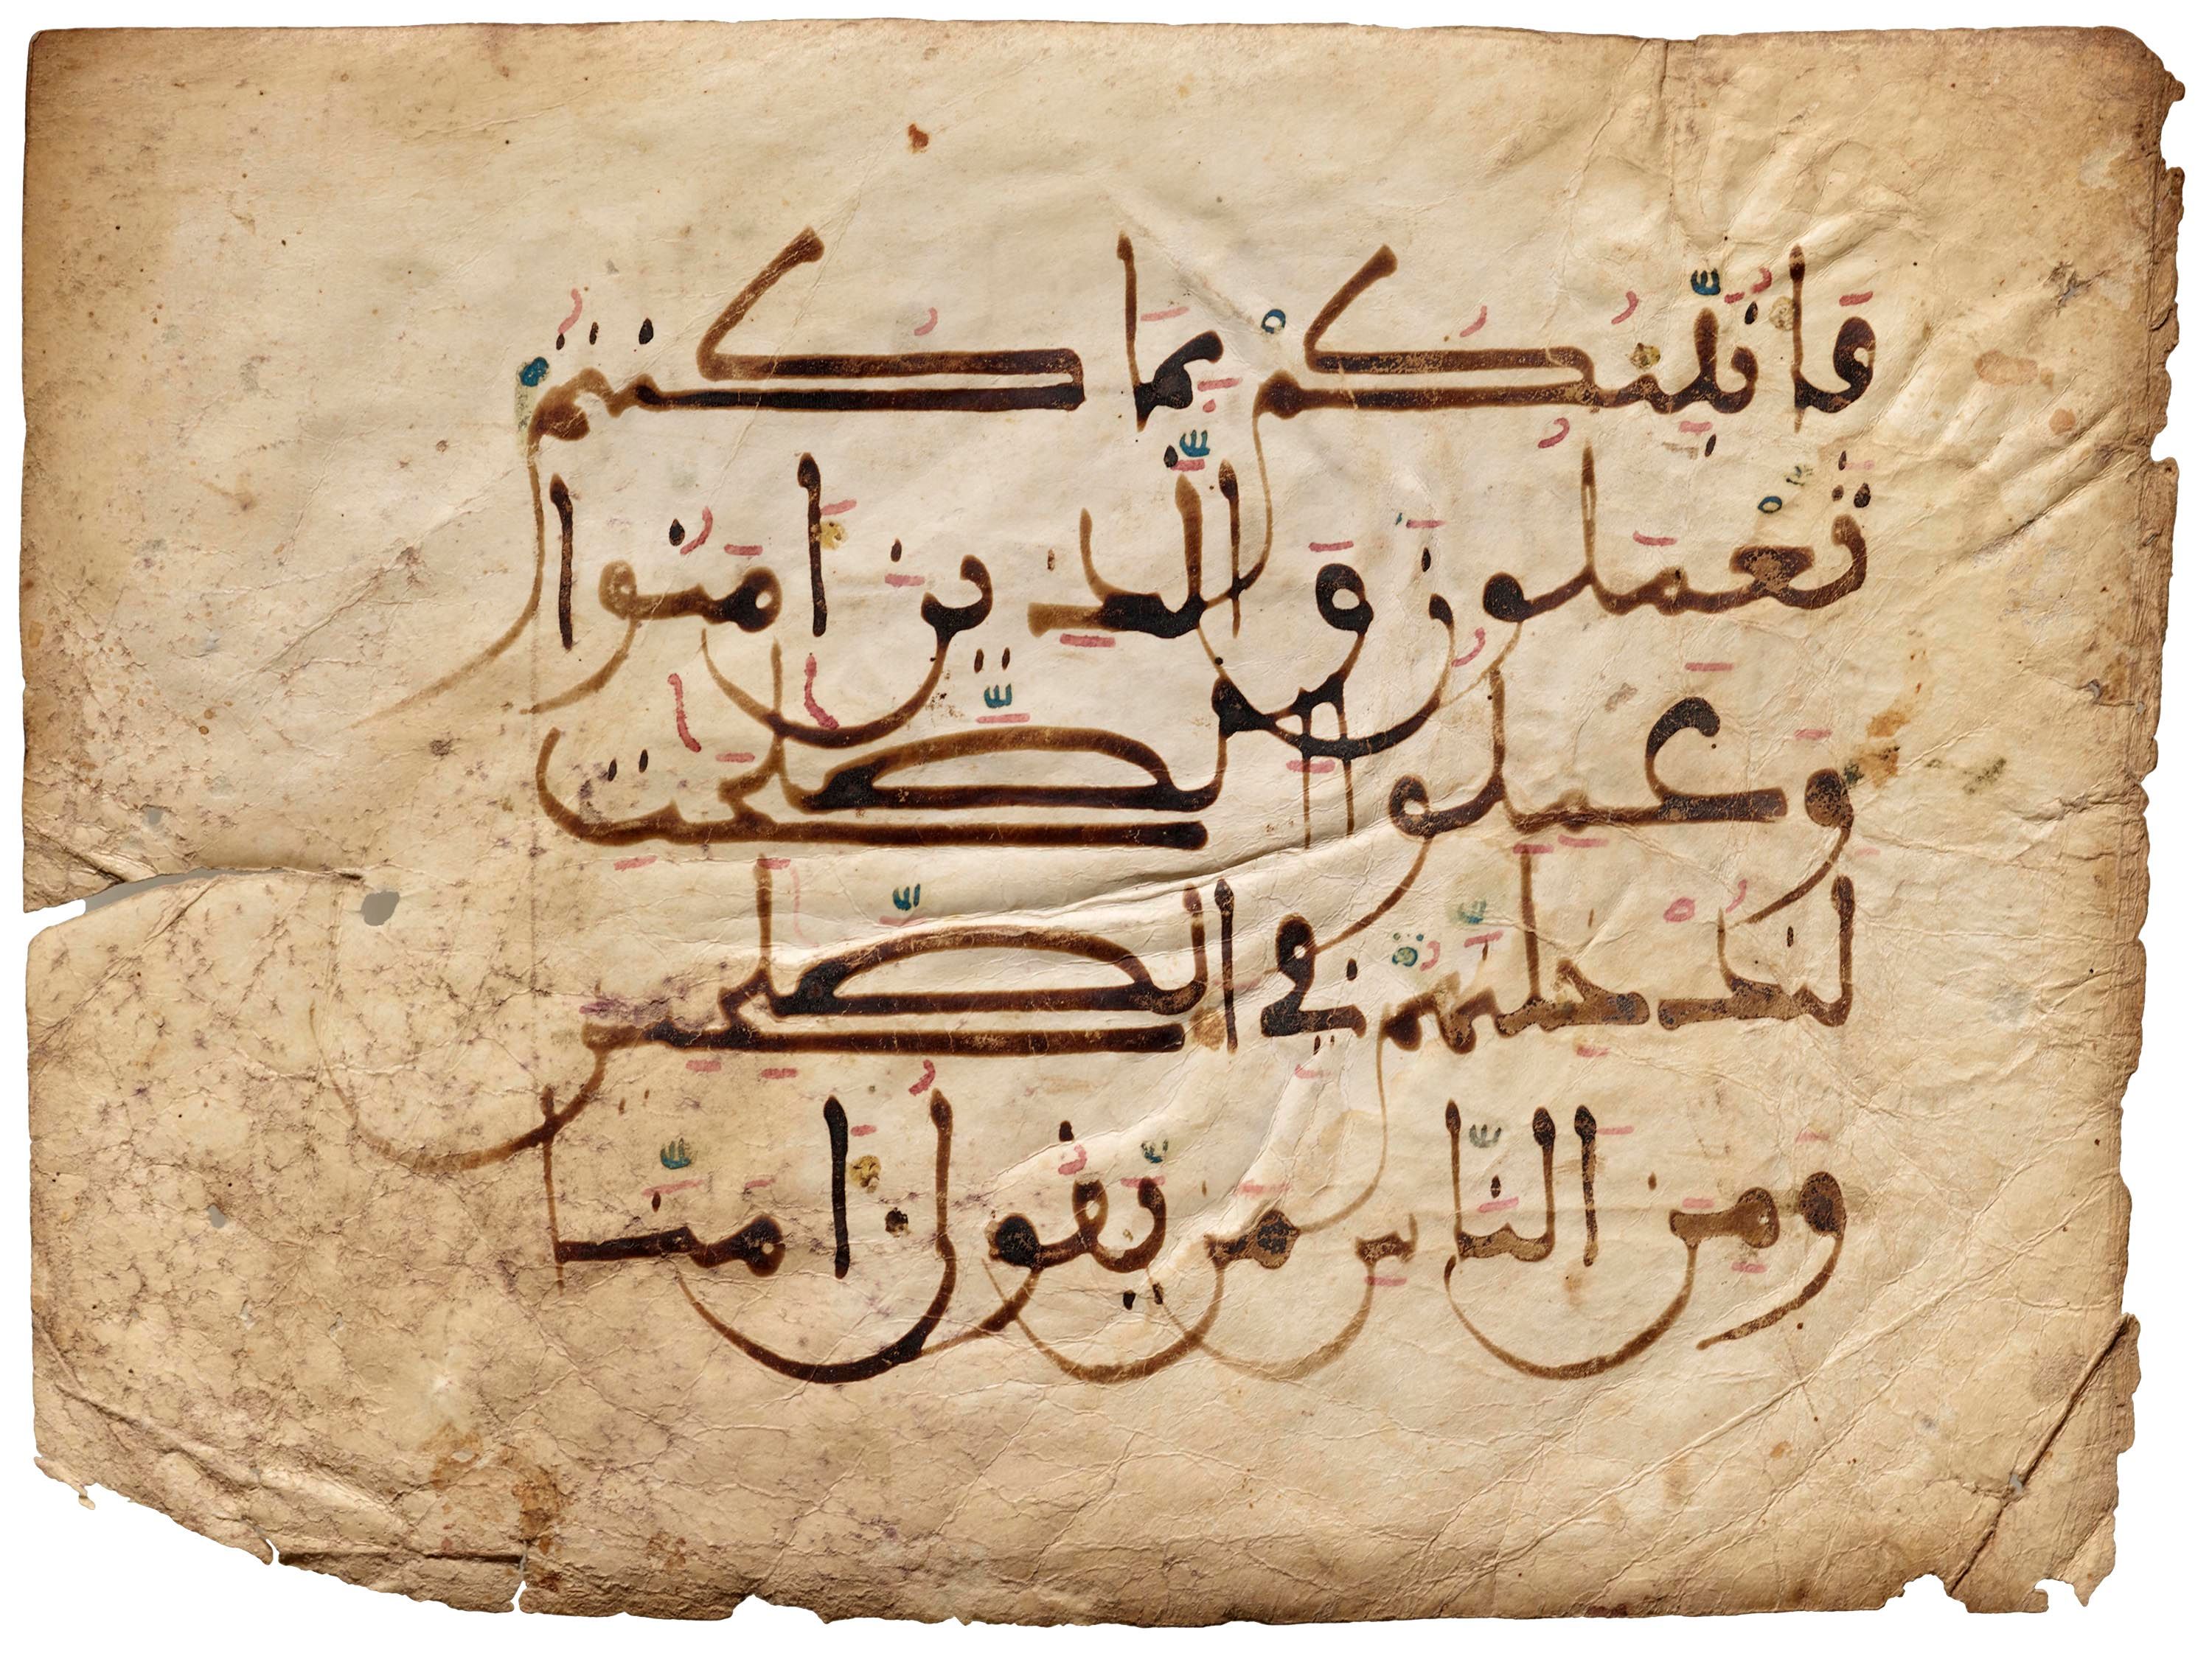 فَأُنَبِّئُكُم بِمَا كُنتُمْ
تَعْمَلُونَ وَالَّذِينَ ءَامَنُوا
وَعَمِلُوا الصَّٰلِحَٰتِ
لَنُدْخِلَنَّهُمْ فِي الصَّٰلِحِينَ
وَمِنَ النَّاسِ مَن يَّقُولُ ءَامَنَّا